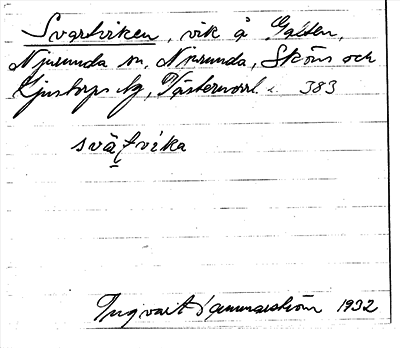 Svartviken, vik å Galten,
Njurunda sn, Njurunda, Sköns och
Ljustorps tg, Västernorrl. l. 383
svätvika
Ingvart Hammarström 1932